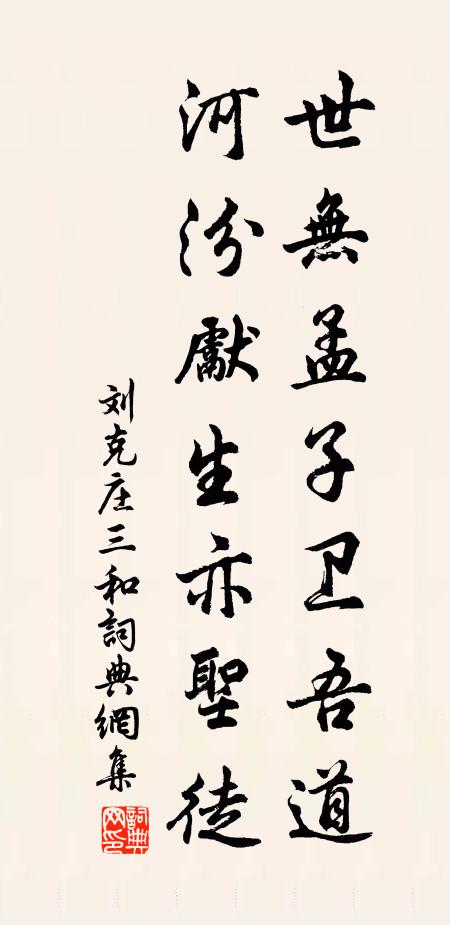 世無孟子卫吾道
河汾獻生亦聖徒
刘克庄三和詞典網集
詞典
网印